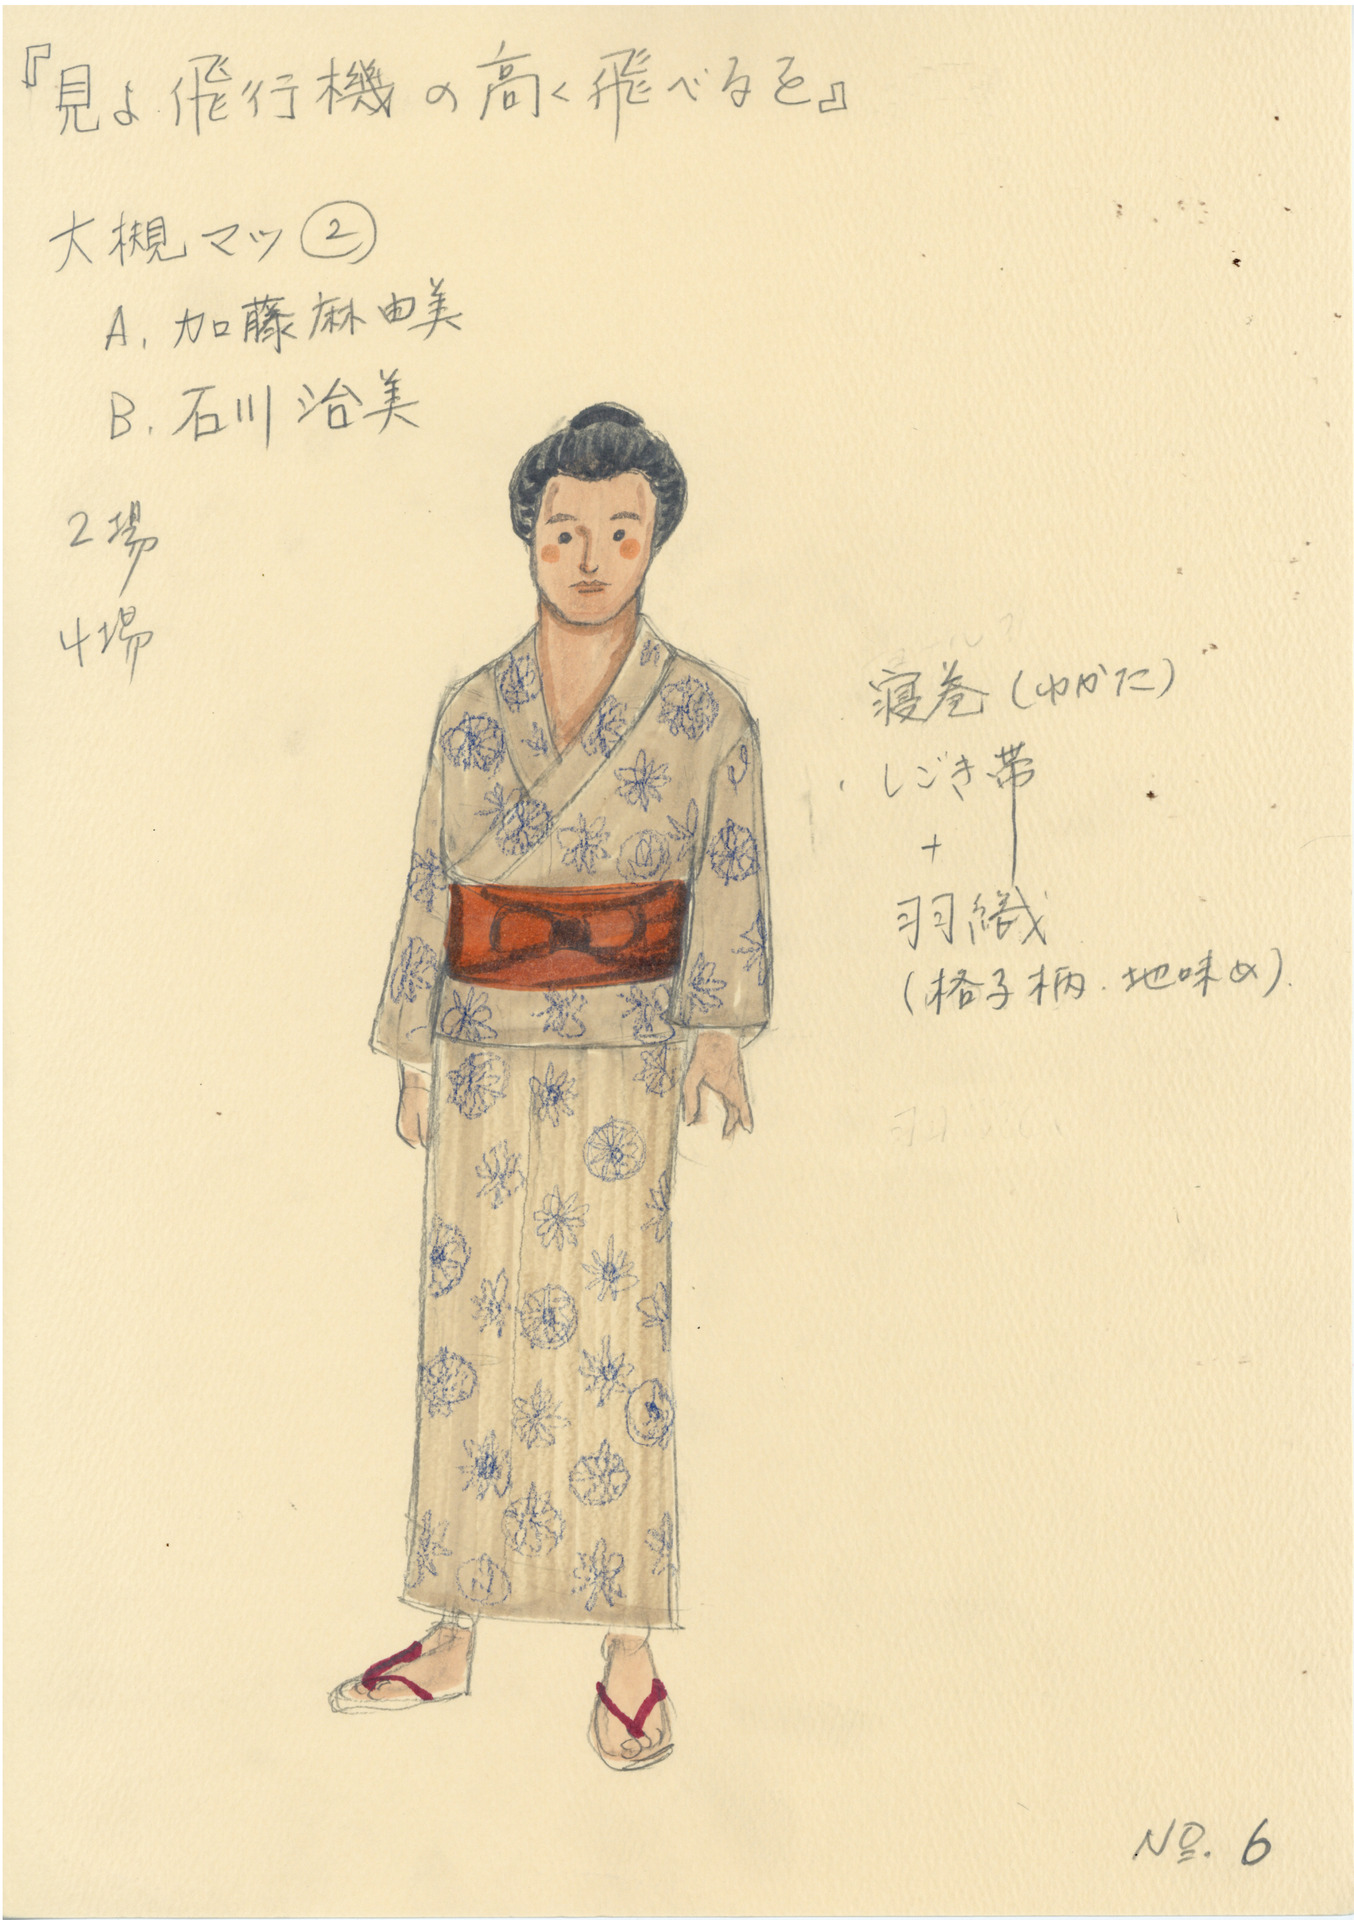 『見よ飛行機の高く飛べるを』
大槻マツ②
A. 加藤麻由美
B. 石川治美
2場
4場
寝巻(ゆかた)
しごき帯
+
羽織
(格子柄.地味め).
No. 6